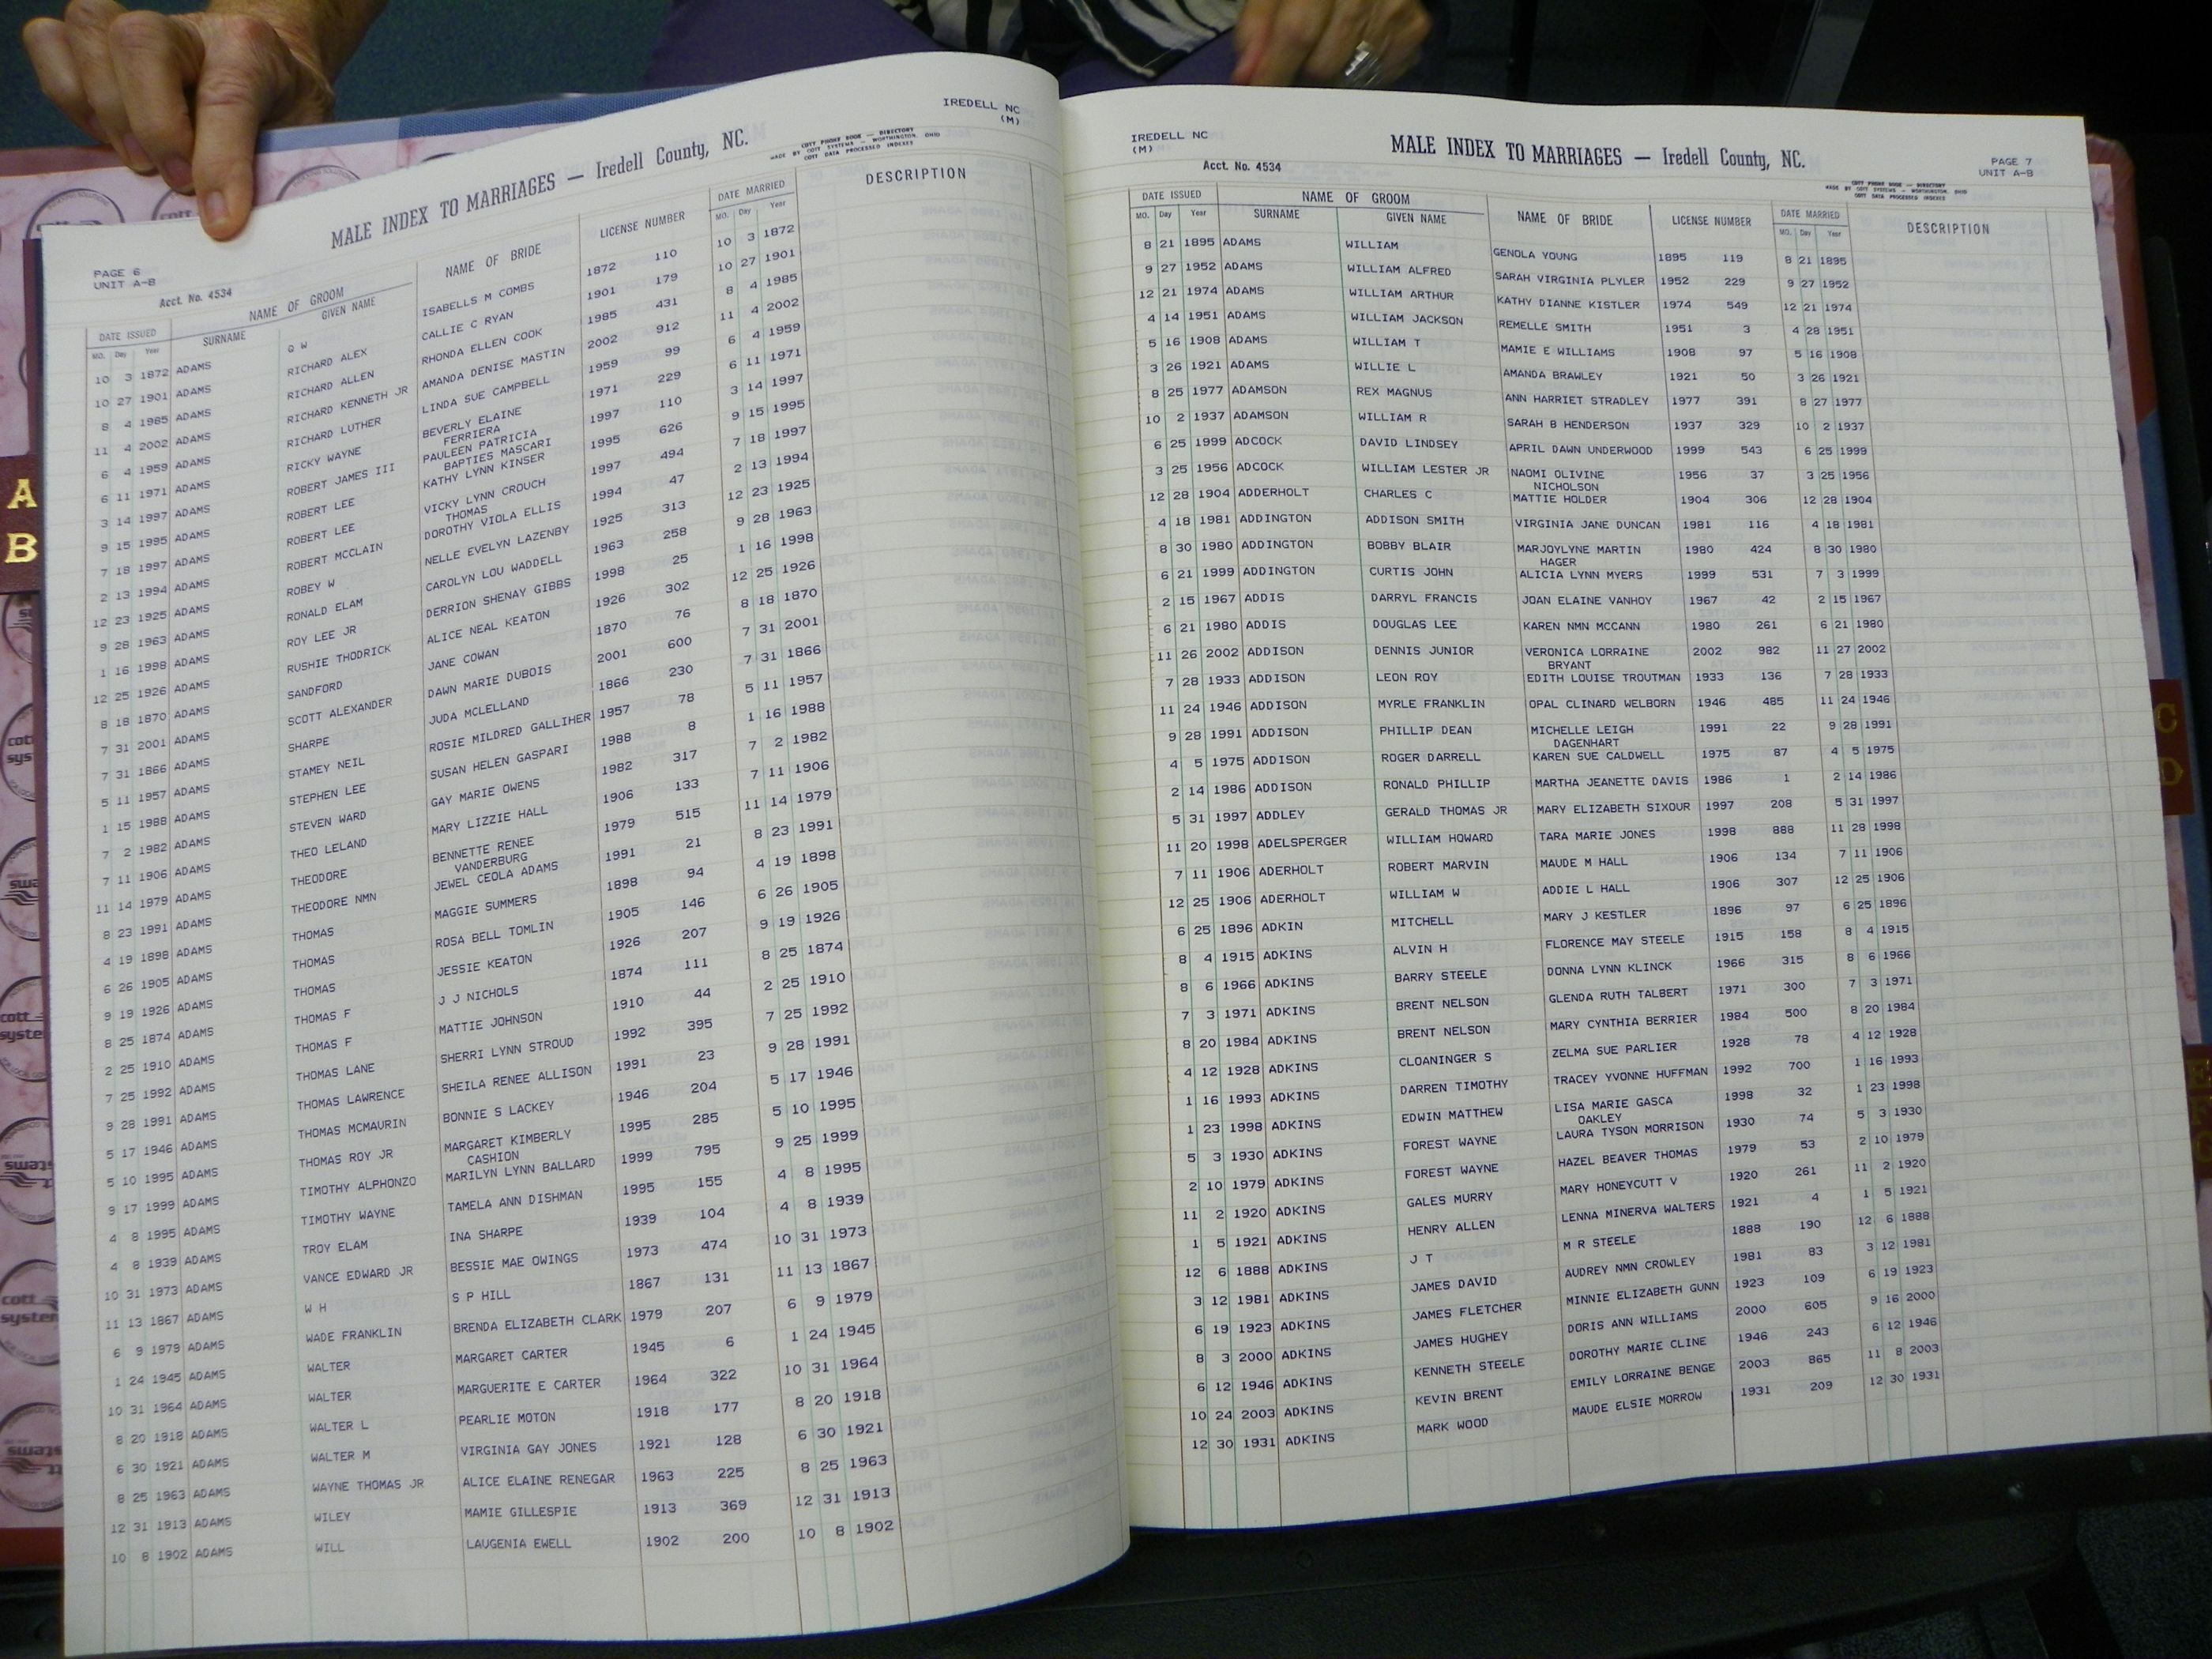 IREDELL NC
(M)
MALE INDEX TO MARRIAGES — Iredell County, NC.
COTT PHONE BOOK — DIRECTORY
MADE BY COTT SYSTEMS — WORTHINGTON, OHIO
COTT DATA PROCESSED INDEXES
PAGE 6
UNIT A-B
Acct. No. 4534
DATE ISSUED NAME OF GROOM NAME OF BRIDE LICENSE NUMBER DATE MARRIED DESCRIPTION
MO. Day Year SURNAME GIVEN NAME MO. Day Year
10 3 1872 ADAMS Q W ISABELLS M COMBS 1872 110 10 3 1872
10 27 1901 ADAMS RICHARD ALEX CALLIE C RYAN 1901 179 10 27 1901
8 4 1985 ADAMS RICHARD ALLEN RHONDA ELLEN COOK 1985 431 8 4 1985
11 4 2002 ADAMS RICHARD KENNETH JR AMANDA DENISE MASTIN 2002 912 11 4 2002
6 4 1959 ADAMS RICHARD LUTHER LINDA SUE CAMPBELL 1959 99 6 4 1959
6 11 1971 ADAMS RICKY WAYNE BEVERLY ELAINE 1971 229 6 11 1971
FERRIERA
3 14 1997 ADAMS ROBERT JAMES III PAULEEN PATRICIA 1997 110 3 14 1997
BAPTIES MASCARI
9 15 1995 ADAMS ROBERT LEE KATHY LYNN KINSER 1995 626 9 15 1995
7 18 1997 ADAMS ROBERT LEE VICKY LYNN CROUCH 1997 494 7 18 1997
THOMAS
2 13 1994 ADAMS ROBERT MCCLAIN DOROTHY VIOLA ELLIS 1994 47 2 13 1994
12 23 1925 ADAMS ROBEY W NELLE EVELYN LAZENBY 1925 313 12 23 1925
9 28 1963 ADAMS RONALD ELAM CAROLYN LOU WADDELL 1963 258 9 28 1963
1 16 1998 ADAMS ROY LEE JR DERRION SHENAY GIBBS 1998 25 1 16 1998
12 25 1926 ADAMS RUSHIE THODRICK ALICE NEAL KEATON 1926 302 12 25 1926
8 18 1870 ADAMS SANDFORD JANE COWAN 1870 76 8 18 1870
7 31 2001 ADAMS SCOTT ALEXANDER DAWN MARIE DUBOIS 2001 600 7 31 2001
7 31 1866 ADAMS SHARPE JUDA MCLELLAND 1866 230 7 31 1866
5 11 1957 ADAMS STAMEY NEIL ROSIE MILDRED GALLIHER 1957 78 5 11 1957
1 15 1988 ADAMS STEPHEN LEE SUSAN HELEN GASPARI 1988 8 1 16 1988
7 2 1982 ADAMS STEVEN WARD GAY MARIE OWENS 1982 317 7 2 1982
7 11 1906 ADAMS THEO LELAND MARY LIZZIE HALL 1906 133 7 11 1906
11 14 1979 ADAMS THEODORE BENNETTE RENEE 1979 515 11 14 1979
VANDERBURG
8 23 1991 ADAMS THEODORE NMN JEWEL CEOLA ADAMS 1991 21 8 23 1991
4 19 1898 ADAMS THOMAS MAGGIE SUMMERS 1898 94 4 19 1898
6 26 1905 ADAMS THOMAS ROSA BELL TOMLIN 1905 146 6 26 1905
9 19 1926 ADAMS THOMAS JESSIE KEATON 1926 207 9 19 1926
8 25 1874 ADAMS THOMAS F J J NICHOLS 1874 111 8 25 1874
2 25 1910 ADAMS THOMAS F MATTIE JOHNSON 1910 44 2 25 1910
7 25 1992 ADAMS THOMAS LANE SHERRI LYNN STROUD 1992 395 7 25 1992
9 28 1991 ADAMS THOMAS LAWRENCE SHEILA RENEE ALLISON 1991 23 9 28 1991
5 17 1946 ADAMS THOMAS MCMAURIN BONNIE S LACKEY 1946 204 5 17 1946
5 10 1995 ADAMS THOMAS ROY JR MARGARET KIMBERLY 1995 285 5 10 1995
CASHION
9 17 1999 ADAMS TIMOTHY ALPHONZO MARILYN LYNN BALLARD 1999 795 9 25 1999
4 8 1995 ADAMS TIMOTHY WAYNE TAMELA ANN DISHMAN 1995 155 4 8 1995
4 8 1939 ADAMS TROY ELAM INA SHARPE 1939 104 4 8 1939
10 31 1973 ADAMS VANCE EDWARD JR BESSIE MAE OWINGS 1973 474 10 31 1973
11 13 1867 ADAMS W H S P HILL 1867 131 11 13 1867
6 9 1979 ADAMS WADE FRANKLIN BRENDA ELIZABETH CLARK 1979 207 6 9 1979
1 24 1945 ADAMS WALTER MARGARET CARTER 1945 6 1 24 1945
10 31 1964 ADAMS WALTER MARGUERITE E CARTER 1964 322 10 31 1964
8 20 1918 ADAMS WALTER L PEARLIE MOTON 1918 177 8 20 1918
6 30 1921 ADAMS WALTER M VIRGINIA GAY JONES 1921 128 6 30 1921
8 25 1963 ADAMS WAYNE THOMAS JR ALICE ELAINE RENEGAR 1963 225 8 25 1963
12 31 1913 ADAMS WILEY MAMIE GILLESPIE 1913 369 12 31 1913
10 8 1902 ADAMS WILL LAUGENIA EWELL 1902 200 10 8 1902
IREDELL NC
(M)
MALE INDEX TO MARRIAGES — Iredell County, NC.
PAGE 7
UNIT A-B
Acct. No. 4534
COTT PHONE BOOK — DIRECTORY
MADE BY COTT SYSTEMS — WORTHINGTON, OHIO
COTT DATA PROCESSED INDEXES
DATE ISSUED NAME OF GROOM NAME OF BRIDE LICENSE NUMBER DATE MARRIED DESCRIPTION
MO. Day Year SURNAME GIVEN NAME MO. Day Year
8 21 1895 ADAMS WILLIAM GENOLA YOUNG 1895 119 8 21 1895
9 27 1952 ADAMS WILLIAM ALFRED SARAH VIRGINIA PLYLER 1952 229 9 27 1952
12 21 1974 ADAMS WILLIAM ARTHUR KATHY DIANNE KISTLER 1974 549 12 21 1974
4 14 1951 ADAMS WILLIAM JACKSON REMELLE SMITH 1951 3 4 28 1951
5 16 1908 ADAMS WILLIAM T MAMIE E WILLIAMS 1908 97 5 16 1908
3 26 1921 ADAMS WILLIE L AMANDA BRAWLEY 1921 50 3 26 1921
8 25 1977 ADAMSON REX MAGNUS ANN HARRIET STRADLEY 1977 391 8 27 1977
10 2 1937 ADAMSON WILLIAM R SARAH B HENDERSON 1937 329 10 2 1937
6 25 1999 ADCOCK DAVID LINDSEY APRIL DAWN UNDERWOOD 1999 543 6 25 1999
3 25 1956 ADCOCK WILLIAM LESTER JR NAOMI OLIVINE 1956 37 3 25 1956
NICHOLSON
12 28 1904 ADDERHOLT CHARLES C MATTIE HOLDER 1904 306 12 28 1904
4 18 1981 ADDINGTON ADDISON SMITH VIRGINIA JANE DUNCAN 1981 116 4 18 1981
8 30 1980 ADDINGTON BOBBY BLAIR MARJOYLYNE MARTIN 1980 424 8 30 1980
HAGER
6 21 1999 ADDINGTON CURTIS JOHN ALICIA LYNN MYERS 1999 531 7 3 1999
2 15 1967 ADDIS DARRYL FRANCIS JOAN ELAINE VANHOY 1967 42 2 15 1967
6 21 1980 ADDIS DOUGLAS LEE KAREN NMN MCCANN 1980 261 6 21 1980
11 26 2002 ADDISON DENNIS JUNIOR VERONICA LORRAINE 2002 982 11 27 2002
BRYANT
7 28 1933 ADDISON LEON ROY EDITH LOUISE TROUTMAN 1933 136 7 28 1933
11 24 1946 ADDISON MYRLE FRANKLIN OPAL CLINARD WELBORN 1946 485 11 24 1946
9 28 1991 ADDISON PHILLIP DEAN MICHELLE LEIGH 1991 22 9 28 1991
DAGENHART
4 5 1975 ADDISON ROGER DARRELL KAREN SUE CALDWELL 1975 87 4 5 1975
2 14 1986 ADDISON RONALD PHILLIP MARTHA JEANETTE DAVIS 1986 1 2 14 1986
5 31 1997 ADDLEY GERALD THOMAS JR MARY ELIZABETH SIXOUR 1997 208 5 31 1997
11 20 1998 ADELSPERGER WILLIAM HOWARD TARA MARIE JONES 1998 888 11 28 1998
7 11 1906 ADERHOLT ROBERT MARVIN MAUDE M HALL 1906 134 7 11 1906
12 25 1906 ADERHOLT WILLIAM W ADDIE L HALL 1906 307 12 25 1906
6 25 1896 ADKIN MITCHELL MARY J KESTLER 1896 97 6 25 1896
8 4 1915 ADKINS ALVIN H FLORENCE MAY STEELE 1915 158 8 4 1915
8 6 1966 ADKINS BARRY STEELE DONNA LYNN KLINCK 1966 315 8 6 1966
7 3 1971 ADKINS BRENT NELSON GLENDA RUTH TALBERT 1971 300 7 3 1971
8 20 1984 ADKINS BRENT NELSON MARY CYNTHIA BERRIER 1984 500 8 20 1984
4 12 1928 ADKINS CLOANINGER S ZELMA SUE PARLIER 1928 78 4 12 1928
1 16 1993 ADKINS DARREN TIMOTHY TRACEY YVONNE HUFFMAN 1992 700 1 16 1993
1 23 1998 ADKINS EDWIN MATTHEW LISA MARIE GASCA 1998 32 1 23 1998
OAKLEY
5 3 1930 ADKINS FOREST WAYNE LAURA TYSON MORRISON 1930 74 5 3 1930
2 10 1979 ADKINS FOREST WAYNE HAZEL BEAVER THOMAS 1979 53 2 10 1979
11 2 1920 ADKINS GALES MURRY MARY HONEYCUTT V 1920 261 11 2 1920
1 5 1921 ADKINS HENRY ALLEN LENNA MINERVA WALTERS 1921 4 1 5 1921
12 6 1888 ADKINS J T M R STEELE 1888 190 12 6 1888
3 12 1981 ADKINS JAMES DAVID AUDREY NMN CROWLEY 1981 83 3 12 1981
6 19 1923 ADKINS JAMES FLETCHER MINNIE ELIZABETH GUNN 1923 109 6 19 1923
8 3 2000 ADKINS JAMES HUGHEY DORIS ANN WILLIAMS 2000 605 9 16 2000
6 12 1946 ADKINS KENNETH STEELE DOROTHY MARIE CLINE 1946 243 6 12 1946
10 24 2003 ADKINS KEVIN BRENT EMILY LORRAINE BENGE 2003 865 11 8 2003
12 30 1931 ADKINS MARK WOOD MAUDE ELSIE MORROW 1931 209 12 30 1931
A
B
C
D
cott
systems